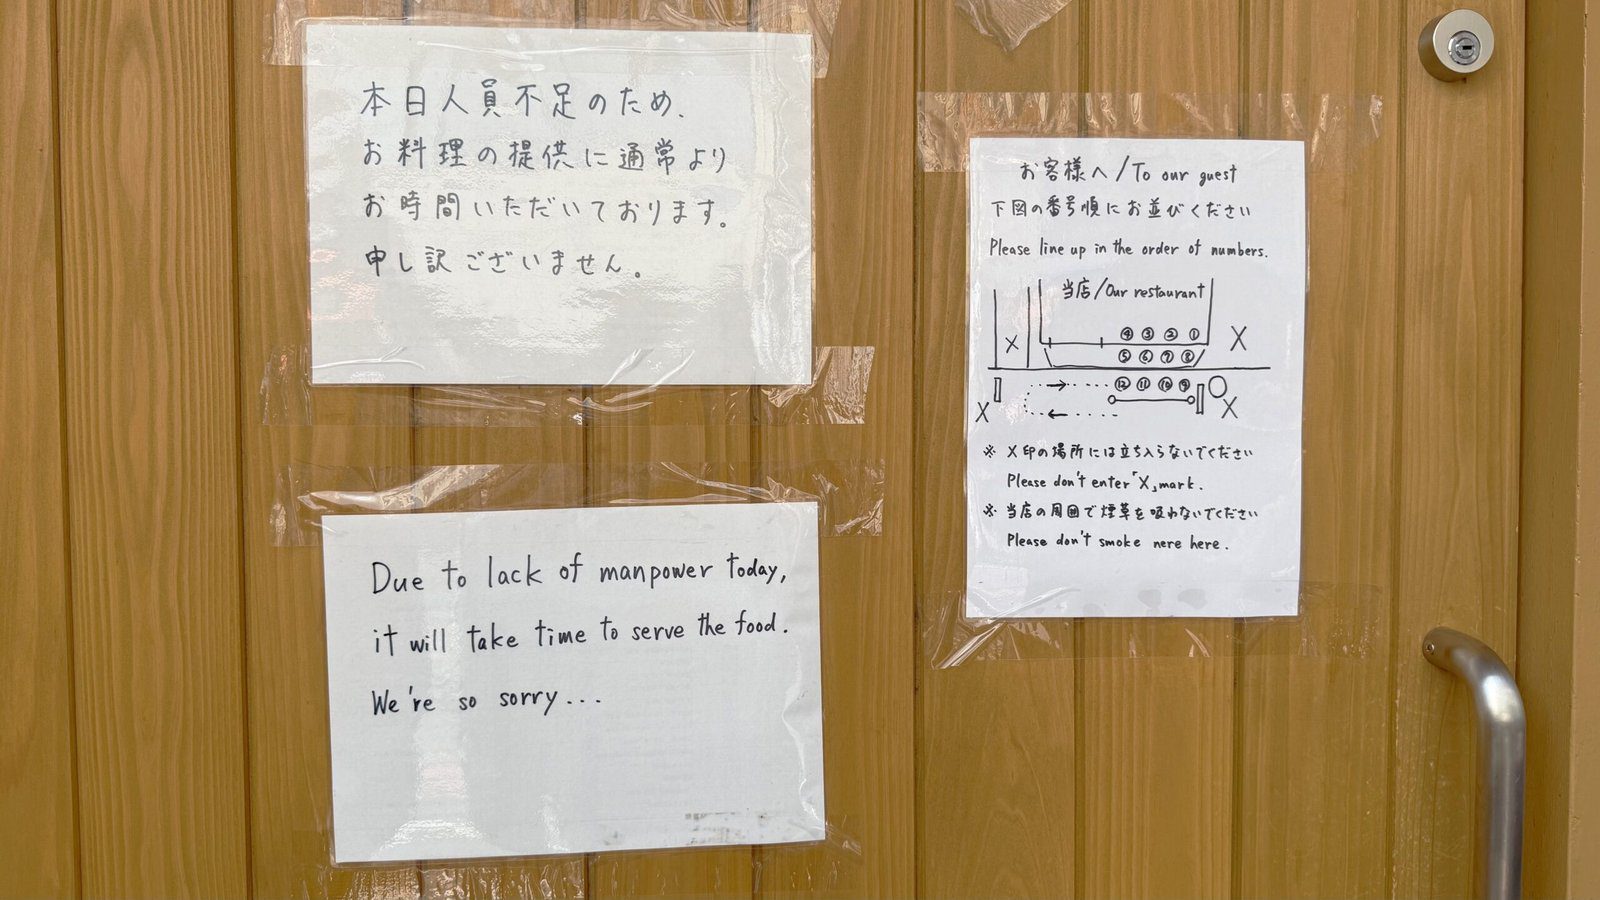 本日人員不足のため、
お料理の提供に通常より
お時間いただいております。
申し訳ございません。
Due to lack of manpower today,
it will take time to serve the food.
We're so sorry...
お客様へ/To our guest
下図の番号順にお並びください
Please line up in the order of numbers.
当店/Our restaurant
X ④ ③ ② ① X
⑤ ⑥ ⑦ ⑧
⑫ ⑪ ⑩ ⑨
X X
※ X印の場所には立ち入らないでください
Please don't enter「X」mark.
※ 当店の周囲で煙草を吸わないでください
Please don't smoke nere here.